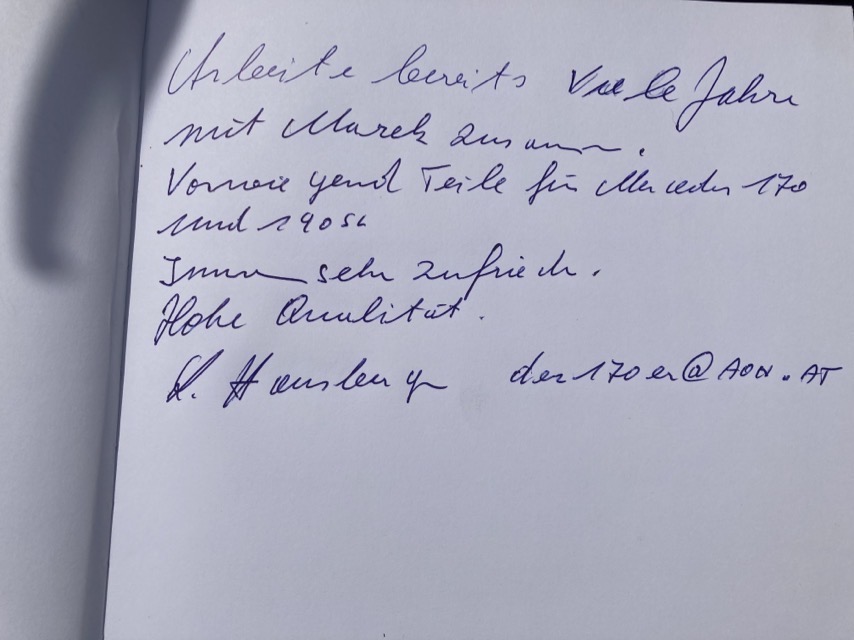 Arbeite bereits Viele Jahre
mit Marek zusammen.
Vorwiegend Teile für Mercedes 170
und 190SL
Immer sehr zufrieden.
Hohe Qualität.
der170er@AON.AT